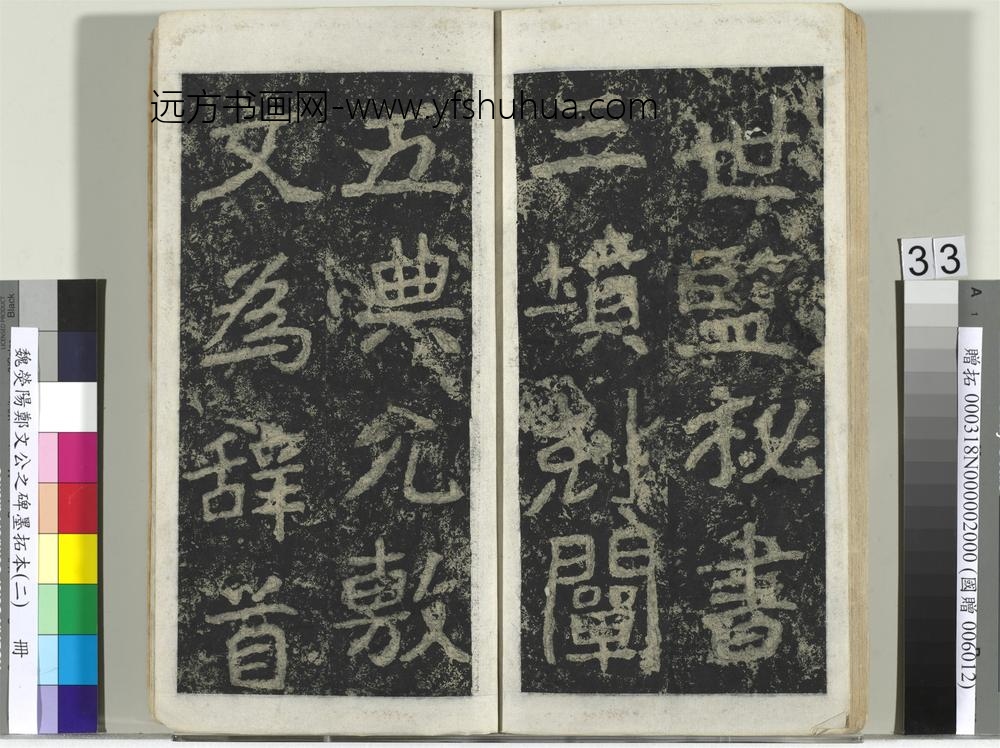 远方书画网-www.yfshuhua.com
世監秘書
三墳剋闡
五典允敷
文為辭首
33
魏滎陽鄭文公之碑墨拓本(二) 冊
贈拓 000318N000002000 (國贈 006012)
Black
A
1